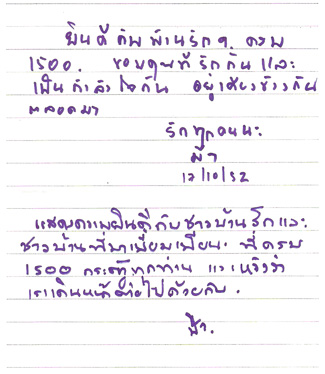 ยินดีกับบ้านรักๆ ครบ
1500. ขอบคุณที่รักกันและ
เป็นกำลังใจกัน อยู่เคียงข้างกัน
ตลอดมา
รักทุกคนนะ
ฟ้า
12/10/52
แสดงความยินดีกับชาวบ้านรักและ
ชาวบ้านที่มาเยี่ยมเยียน ที่ครบ
1500 กระทู้ทุกท่าน และหวังว่า
เราเดินหน้าต่อไปด้วยกัน.
ฟ้า.